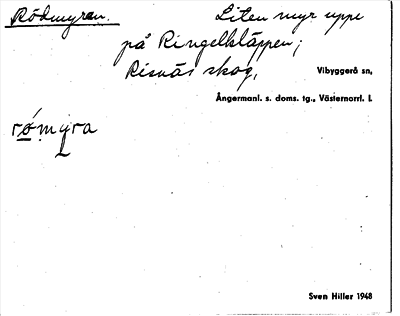 Rödmyran. Liten myr uppe
på Ringelkläppen;
Risnäs skog, Vibyggerå sn,
Ångermanl. s. doms. tg., Västernorrl. l.
rómyra
Sven Hiller 1948